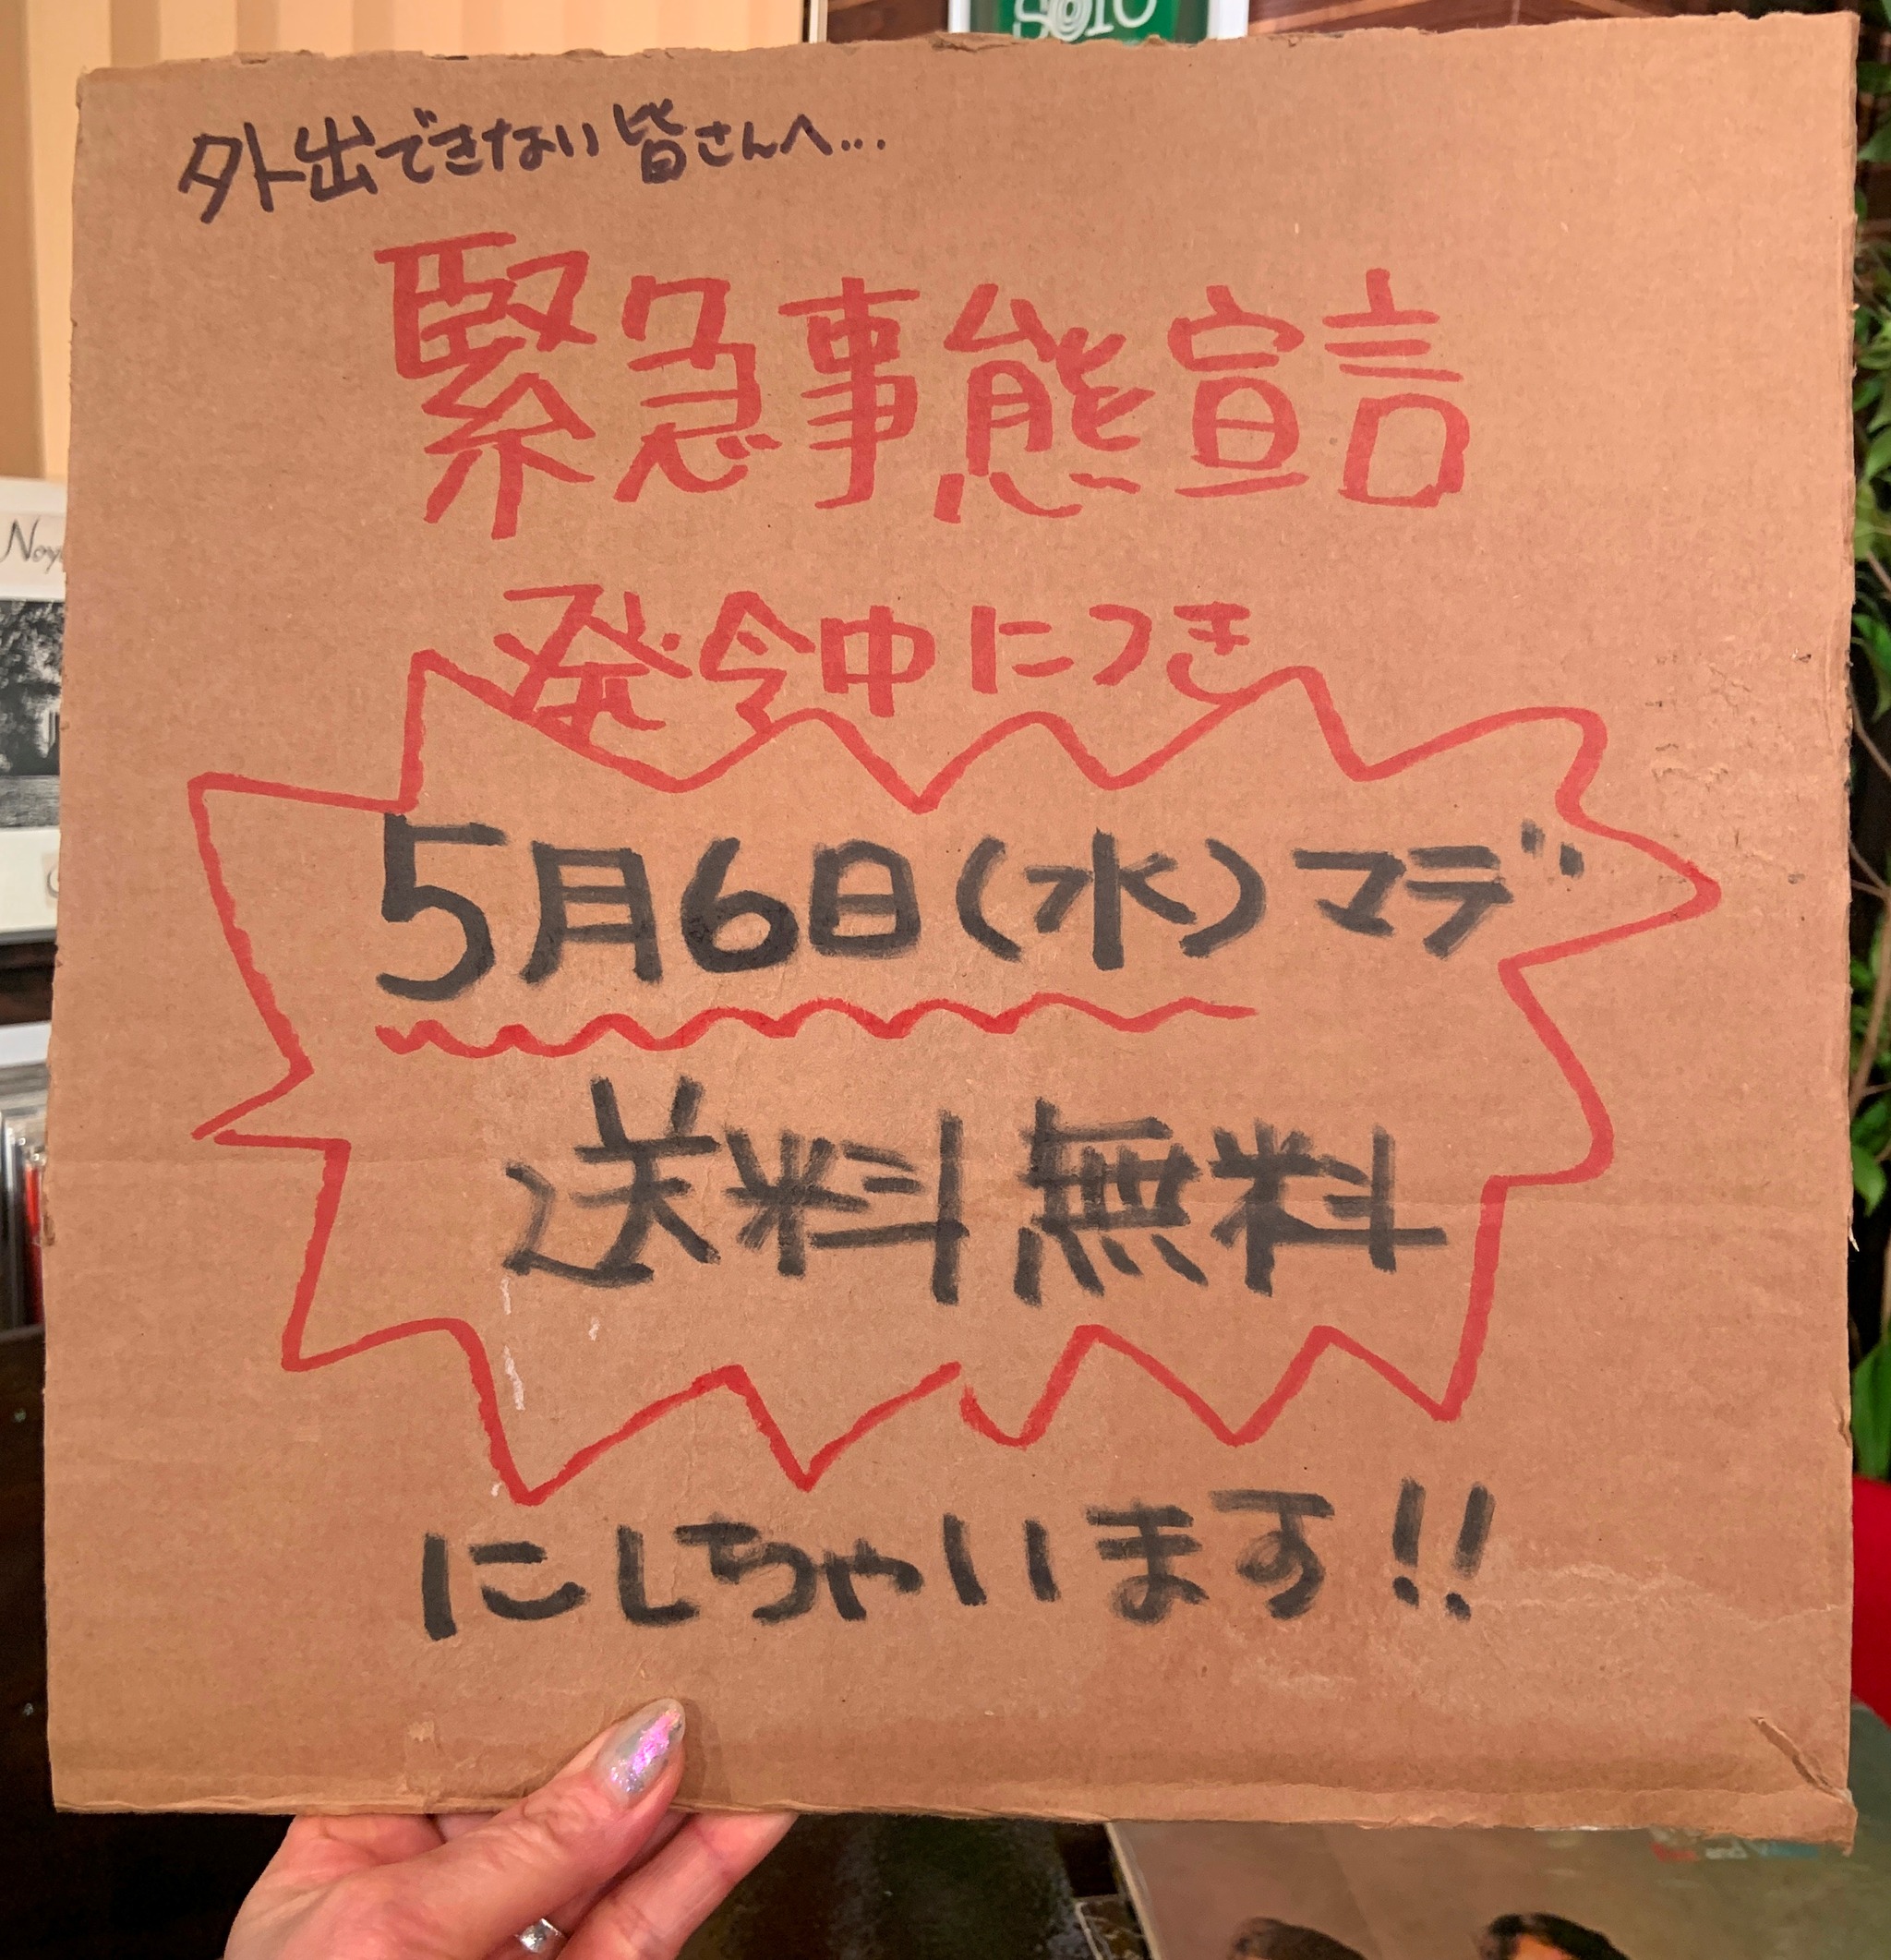 SOLO
外出できない皆さんへ...
緊急事態宣言
発令中につき
5月6日(水)マデ
送料無料
にしちゃいます!!